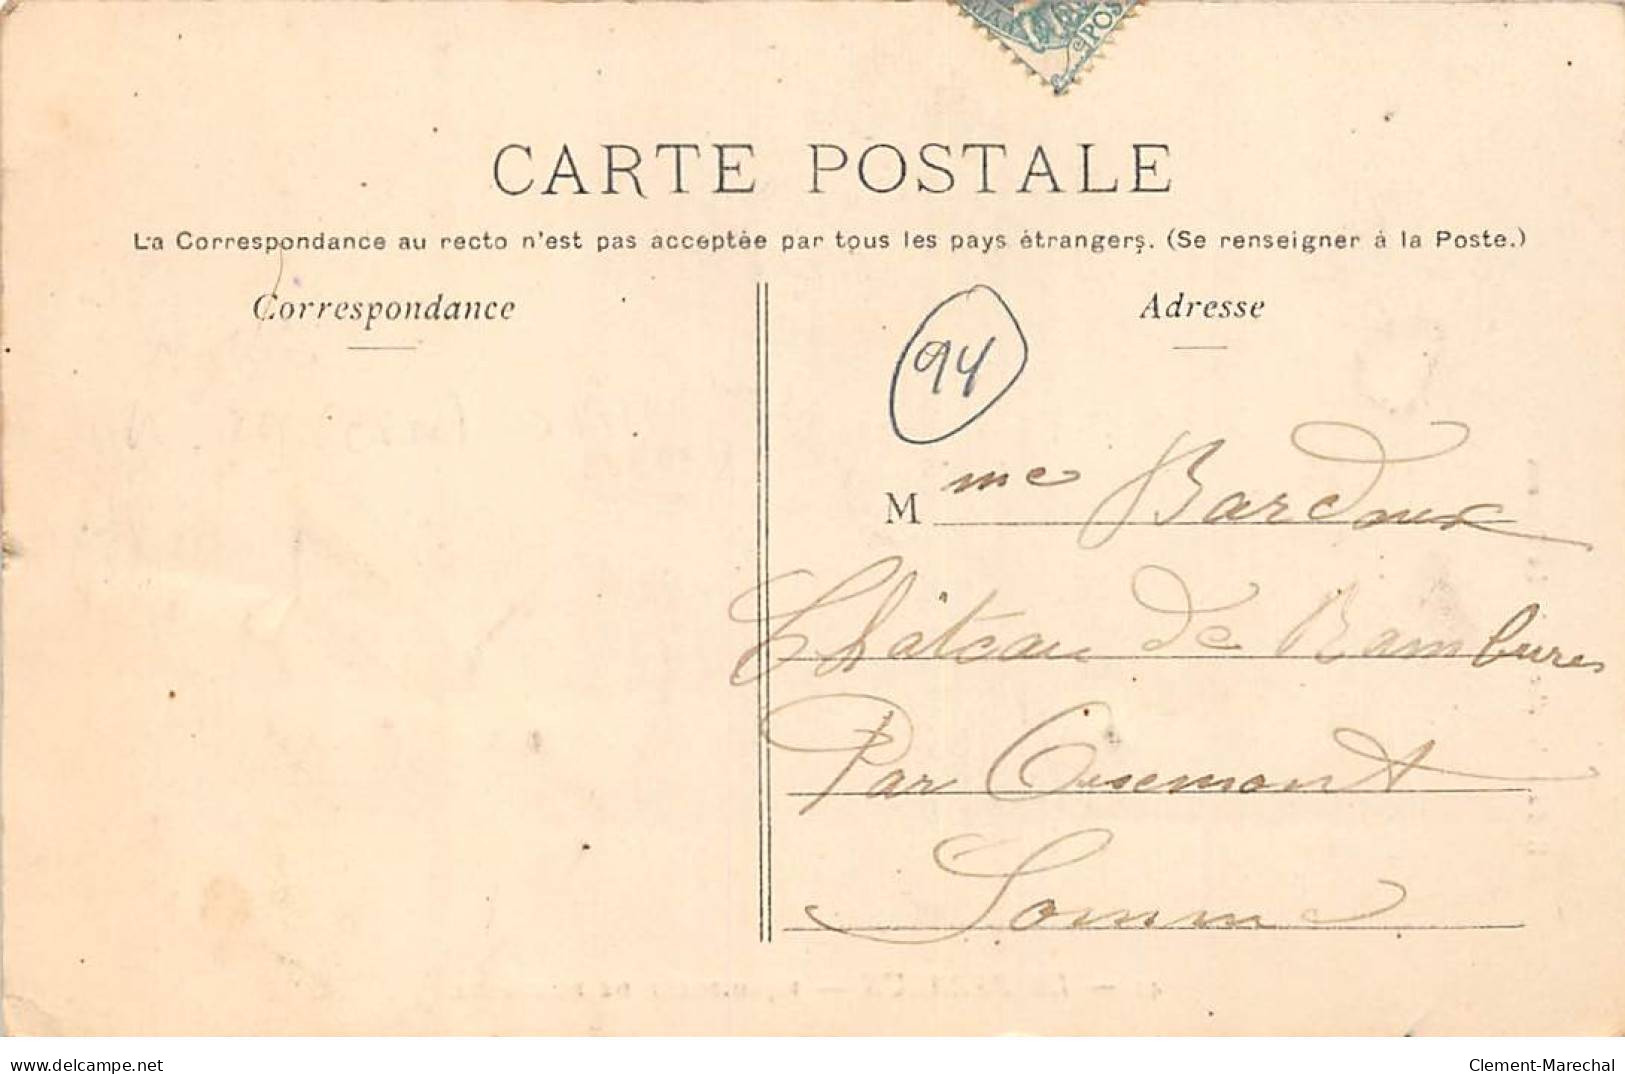 POS
CARTE POSTALE
La Correspondance au recto n'est pas acceptée par tous les pays étrangers. (Se renseigner à la Poste.)
Correspondance
Adresse
94
Mme Bardoux
Château de Rambures
Par Oisemont
Somme
delcampe.net
Clement-Marechal